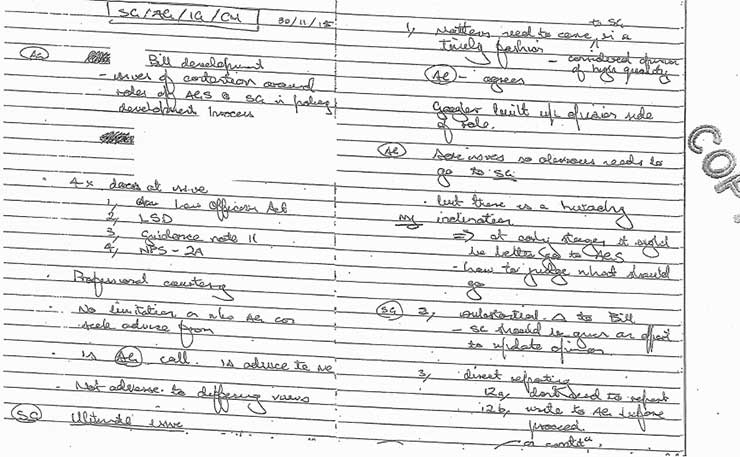 SG/AG/IG/CM 30/11/15
AG
Bill development
- issues of contention around
roles of AGS & SG in policy
development process
4 x docs at issue
1, Law Officers Act
2, LSD
3, Guidance note 11
4, NPS - 2A
Professional courtesy
No limitation on who AG can
seek advice from
is AG call. is advice to me
Not adverse to differing views
SG Ultimate issue
1, Matters need to come to SG in a
timely fashion - considered opinion
of high quality
AG - agrees
Gageler built up opinion side
of role.
AG Some issues so obvious needs to
go to SG
but there is a hierarchy
my inclination
⇒ at early stages it might
be better to go to AGS
- how to judge what should
go
SG 2, substantial Δ to Bill
- SG should be given an
to update opinion
3, direct reporting
12a, dont need to report
12b, write to AG before
proceed
COPY